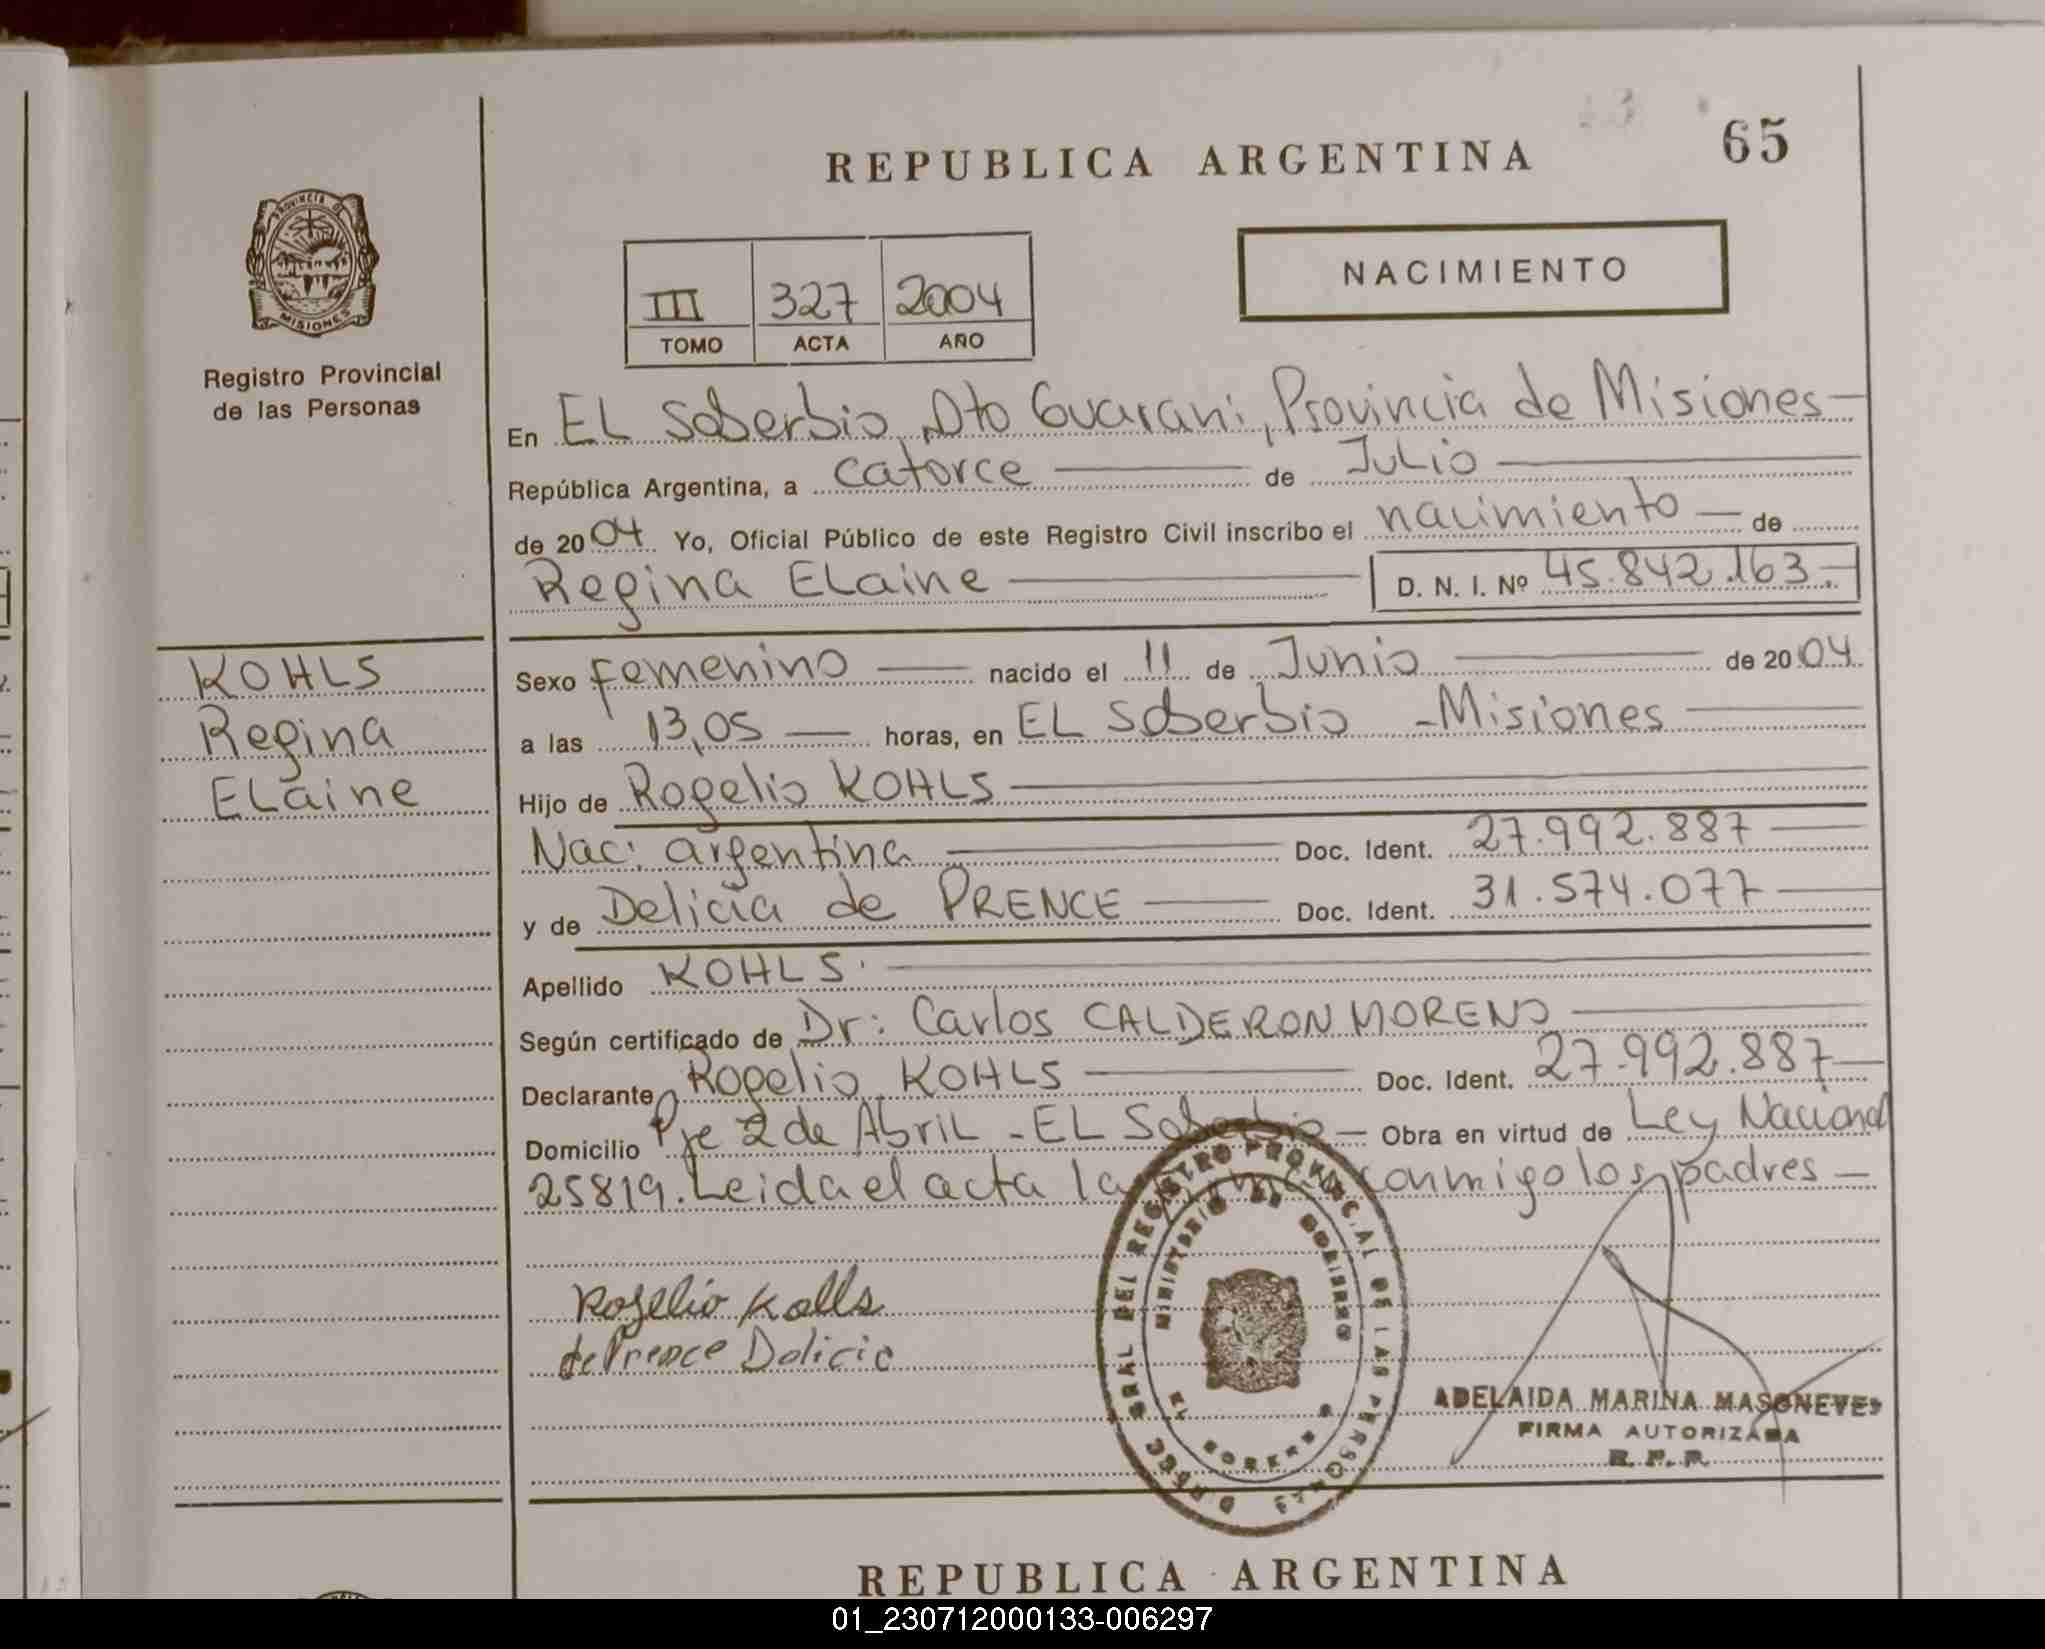 REPUBLICA ARGENTINA
65
NACIMIENTO
III 327 2004
TOMO ACTA AÑO
PROVINCIA DE
MISIONES
Registro Provincial
de las Personas
En EL Soberbio, Dto Guarani, Provincia de Misiones
República Argentina, a catorce de Julio
de 2004 Yo, Oficial Público de este Registro Civil inscribo el nacimiento de
Regina ELaine D. N. I. Nº 45.842.163.
KOHLS
Regina
ELaine
Sexo femenino nacido el 11 de Junio de 2004
a las 13,05 horas, en EL Soberbio - Misiones
Hijo de Rogelio KOHLS
Nac: argentina Doc. Ident. 27.992.887
y de Delicia de PRENCE Doc. Ident. 31.574.077
Apellido KOHLS.
Según certificado de Dr: Carlos CALDERON MORENO
Declarante Rogelio KOHLS Doc. Ident. 27.992.887
Domicilio Pje 2 de Abril - EL Soberbio - Obra en virtud de Ley Nacional
25819. Leida el acta la conmigo los padres
Rogelio Kolls
de Prence Dolicic
REGISTRO PROVINCIAL DE LAS PERSONAS
MINISTERIO DE GOBIERNO
ADELAIDA MARINA MASONEVES
FIRMA AUTORIZADA
R. P. P.
REPUBLICA ARGENTINA
01_230712000133-006297